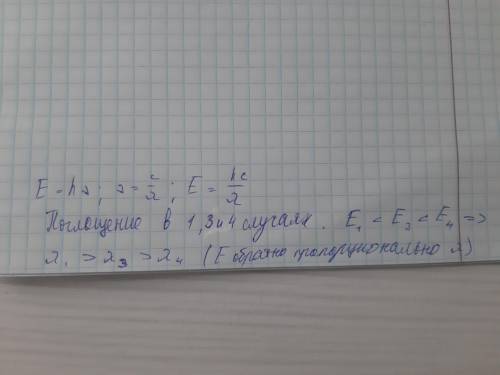 E = hν; ν = c/λ; E = hc/λ
Поглощение в 1,3 и 4 случаях. E₁ < E₃ < E₄ =>
λ₁ > λ₃ > λ₄ (E обратно пропорционально λ)